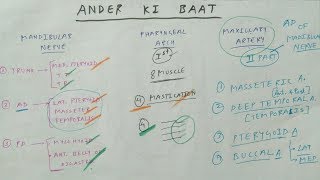 ANDER KI BAAT
MANDIBULAR
NERVE
① TRUNK
MED. PTERYGOID
T.P
T.T
② AD
LAT. PTERYGOID
MASSETER
TEMPORALIS
③ PD
MYLOHYOID
ANT. BELLY OF
DIGASTRIC
PHARYNGEAL
ARCH
Ist
8 MUSCLE
④ MASTICATION
④
MAXILLARY
ARTERY
II PART
AD
OF
MANDIBULAR
NERVE
① MASSETERIC A.
② DEEP TEMPORAL A.
[TEMPORALIS]
③ PTERYGOID A
④ BUCCAL A
LAT
MED